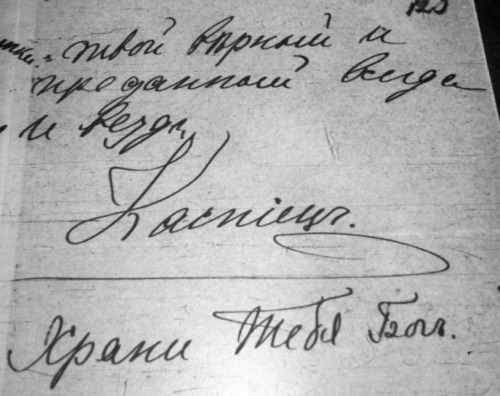 123
твой вѣрный и
преданный всегда
и вездѣ.
Каспіецъ.
Храни Тебя Богъ.